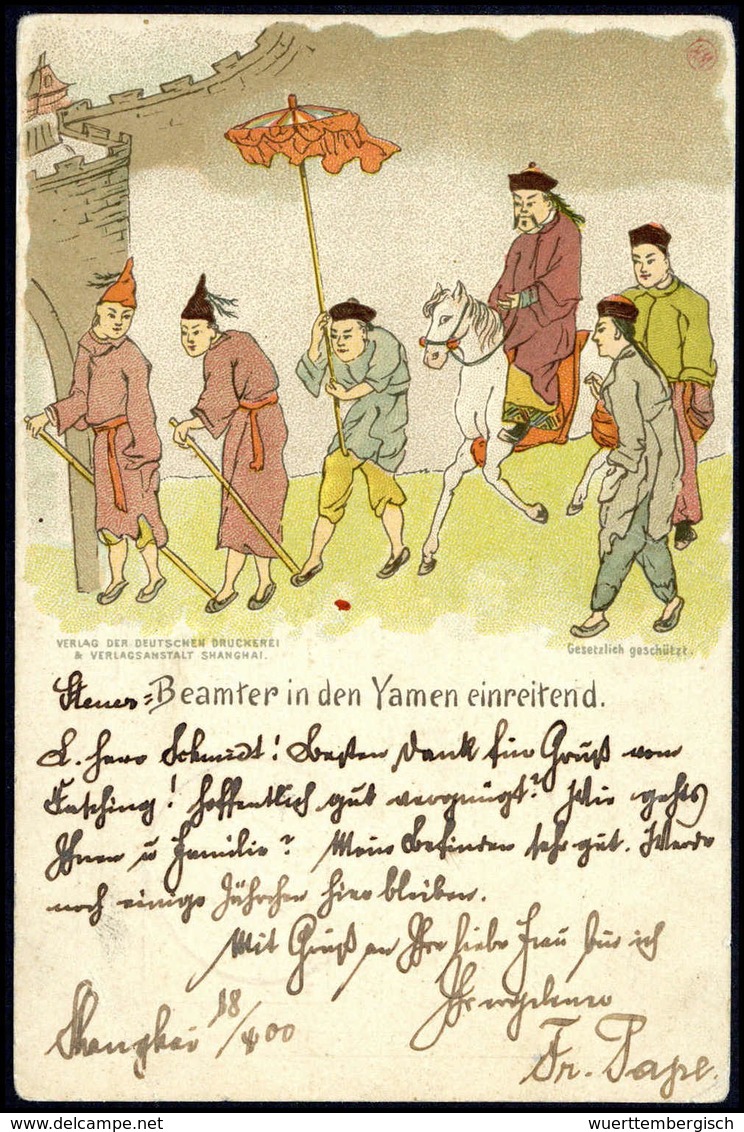 VERLAG DER DEUTSCHEN DRUCKEREI
& VERLAGSANSTALT SHANGHAI.
Gesetzlich geschützt.
Steuer=Beamter in den Yamen einreitend.
L. Herr Schmidt! Besten Dank für Gruß vom
Fasching! Hoffentlich gut vergnügt? Wie gehts
Ihnen u Familie? Mein Befinden sehr gut. Werde
noch einige Jährchen hier bleiben.
Mit Gruß an Ihre liebe Frau bin ich
Ihr ergebener
Shanghai 18/4 00
Fr. Pape.
wuerttembergisch